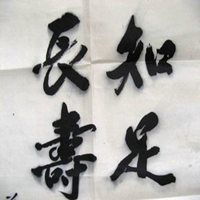 知足
長壽